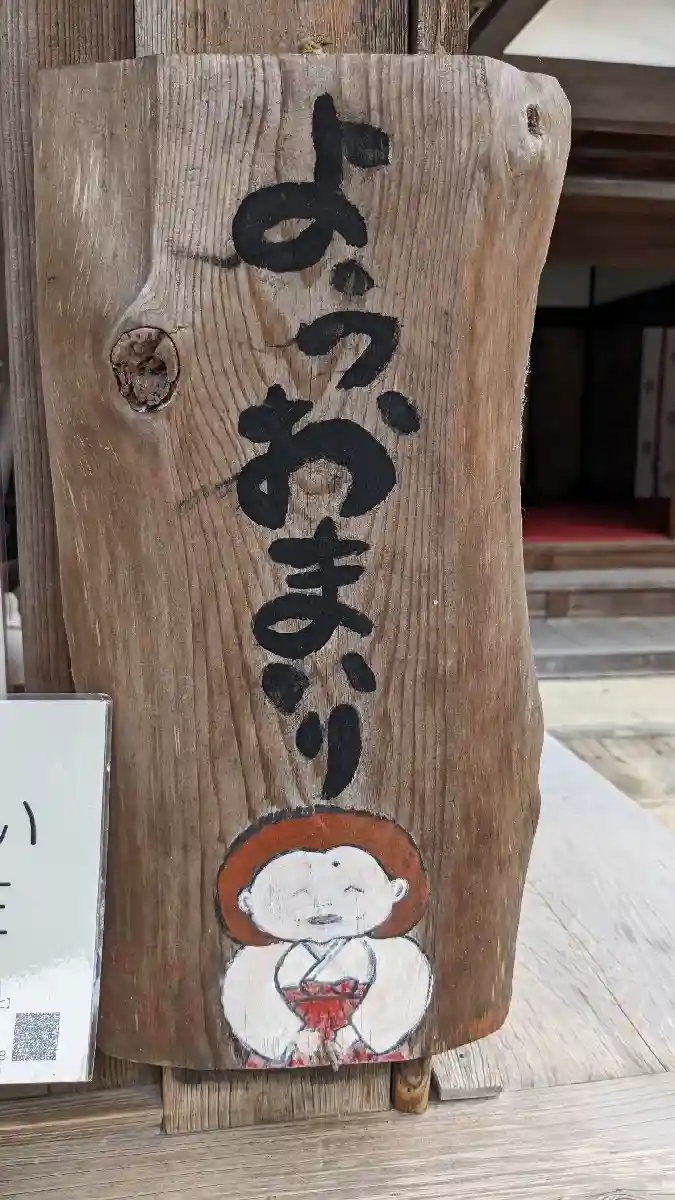 よぅおまいり
い